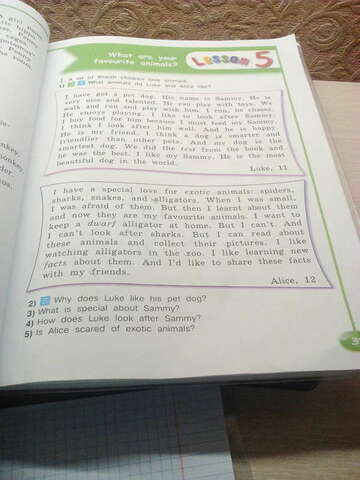 What are your
favourite animals?
Lesson 5
1. A lot of British children love animals.
1) What animals do Luke and Alice like?
I have got a pet dog. His name is Sammy. He is
very nice and talented. He can play with toys. We
walk and run and play with him. I run, he chases.
He enjoys playing. I like to look after Sammy.
I buy food for him because I must feed my Sammy.
I think I look after him well. And he is happy.
He is my friend. I think a dog is smarter and
friendlier than other pets. And my dog is the
smartest dog. We did the test from the book and
he was the best. I like my Sammy. He is the most
beautiful dog in the world.
Luke, 11
I have a special love for exotic animals: spiders,
sharks, snakes, and alligators. When I was small,
I was afraid of them. But then I learnt about them
and now they are my favourite animals. I want to
keep a dwarf alligator at home. But I can't. And
I can't look after sharks. But I can read about
these animals and collect their pictures. I like
watching alligators in the zoo. I like learning new
facts about them. And I'd like to share these facts
with my friends.
Alice, 12
2) Why does Luke like his pet dog?
3) What is special about Sammy?
4) How does Luke look after Sammy?
5) Is Alice scared of exotic animals?